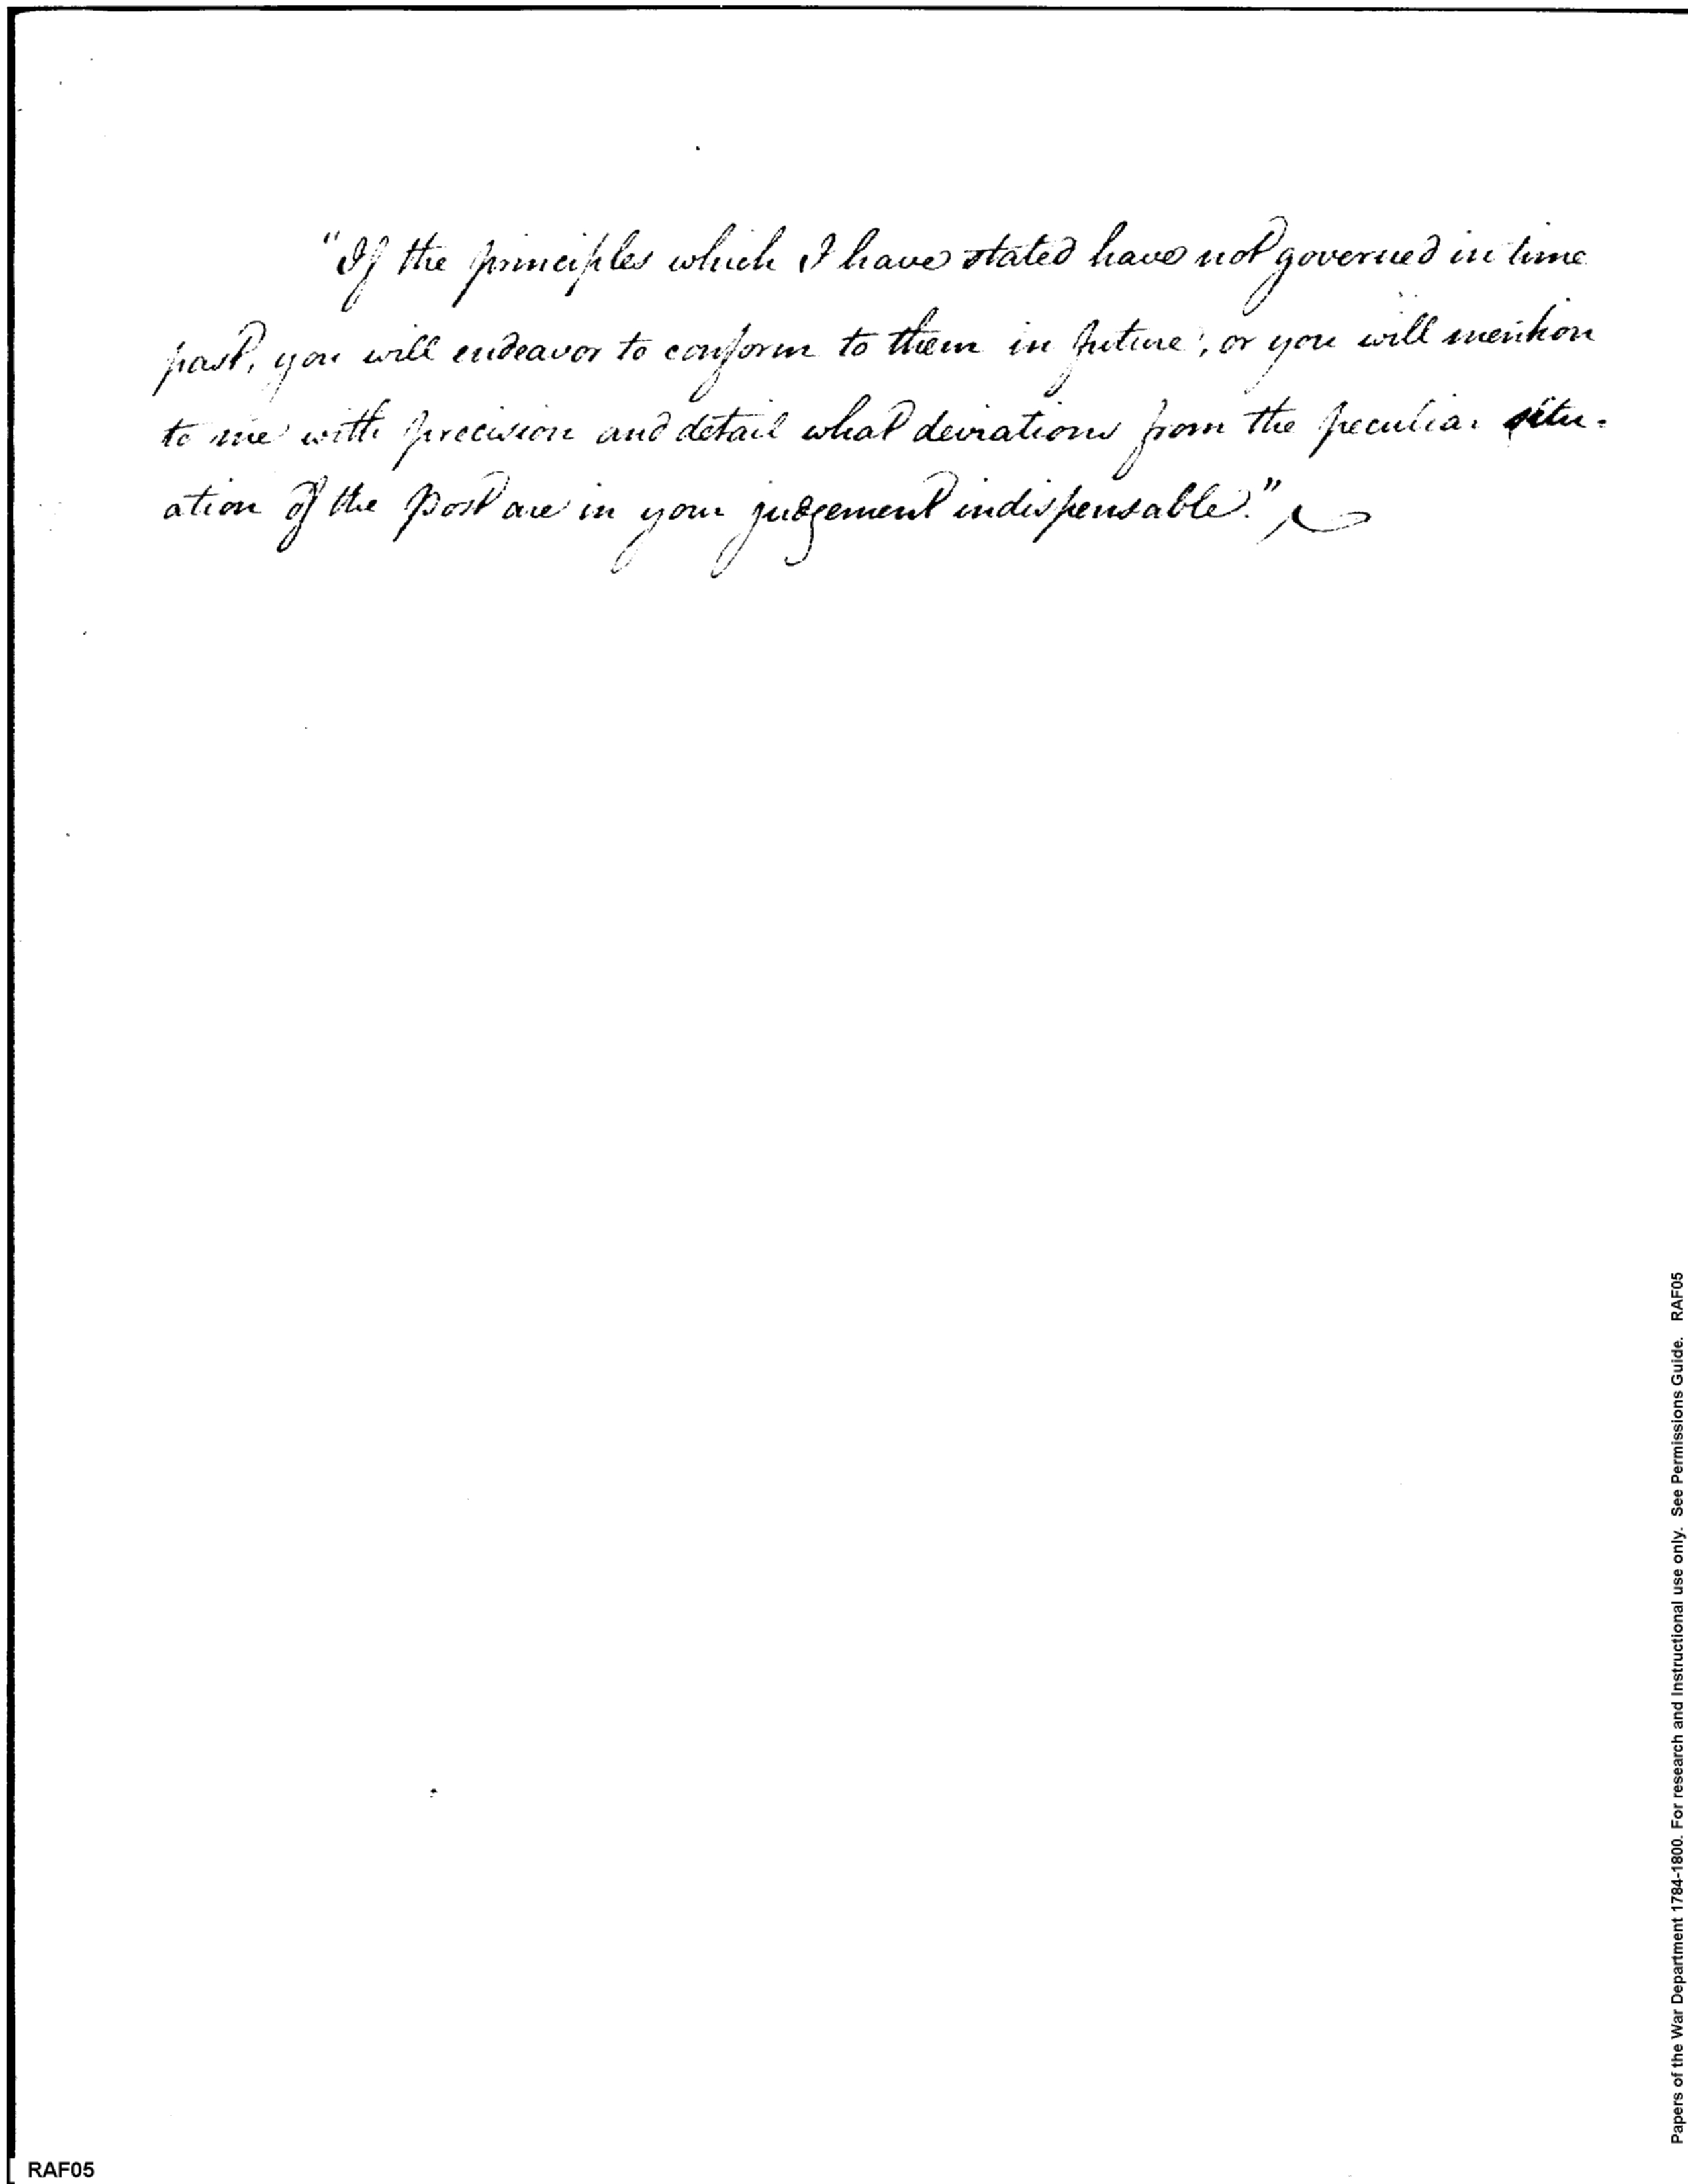 "If the principles which I have stated have not governed in time
past, you will endeavor to conform to them in future, or you will mention
to me with precision and detail what deviations from the peculiar situ-
ation of the post are in your judgement indispensable."
Papers of the War Department 1784-1800. For research and Instructional use only. See Permissions Guide. RAF05
RAF05